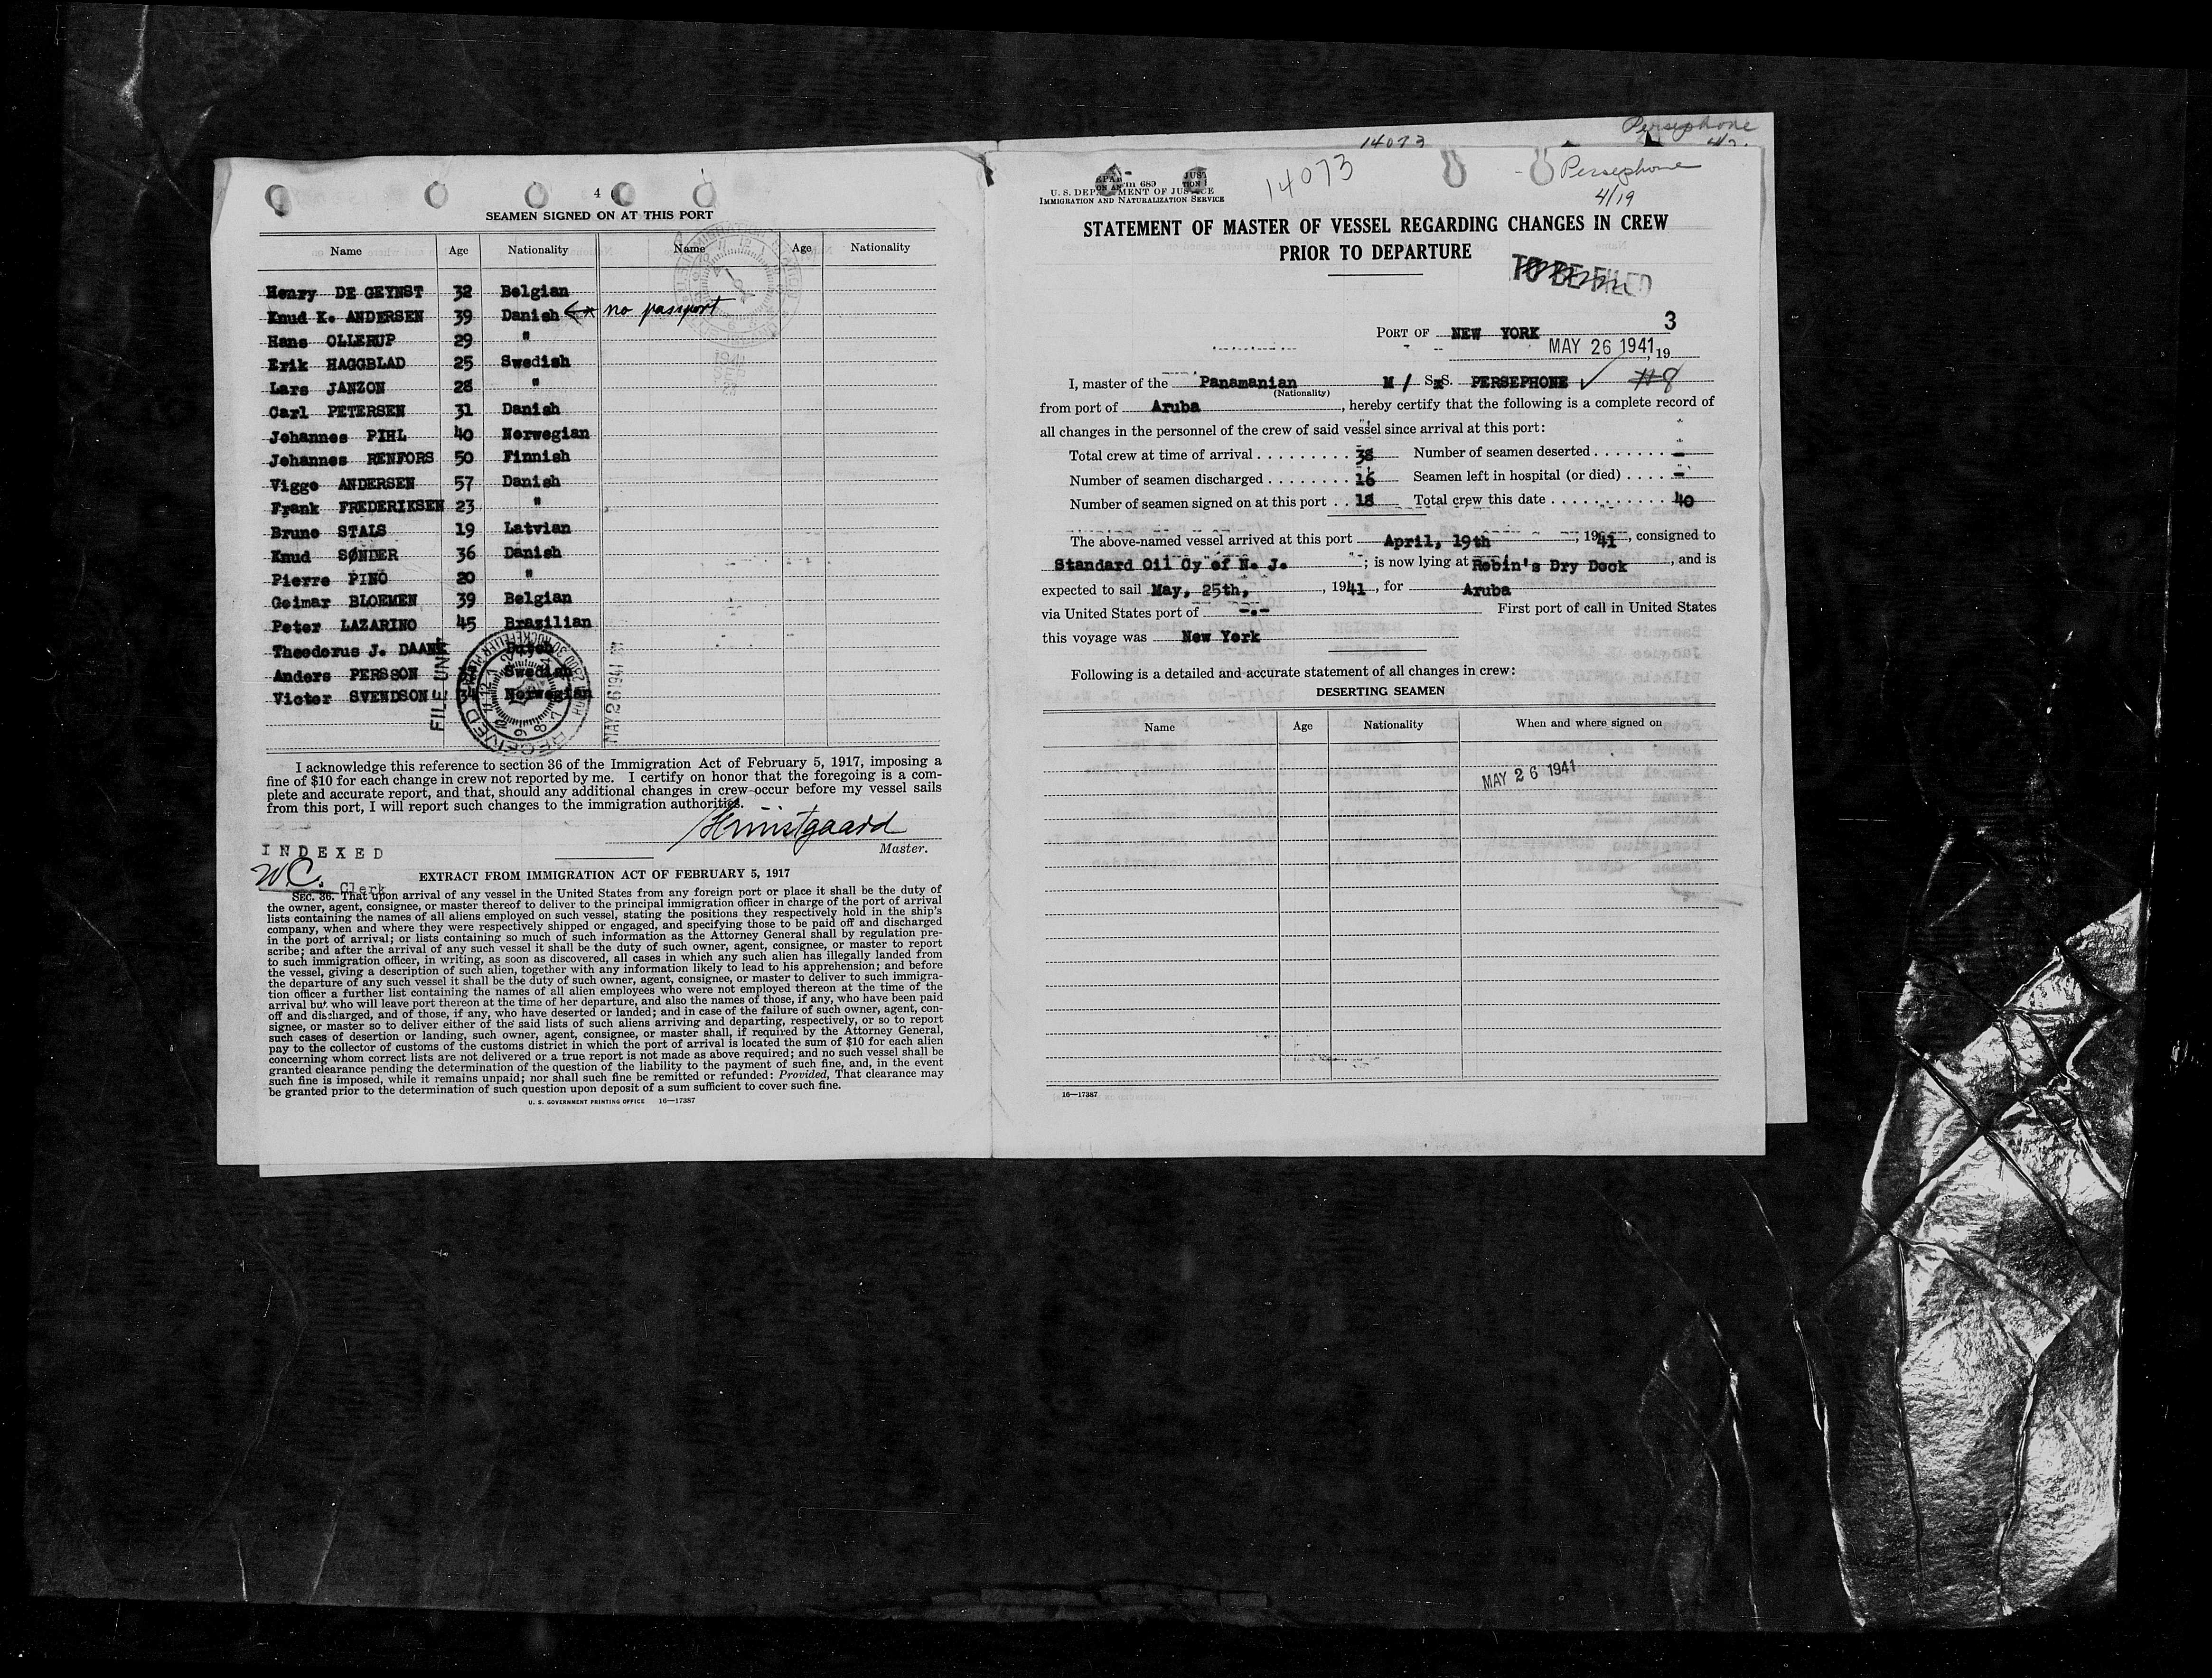 4
SEAMEN SIGNED ON AT THIS PORT
Name Age Nationality Name Age Nationality
Henry DE GEYNST 32 Belgian
Knud K. ANDERSEN 39 Danish no passport
Hans OLLERUP 29 "
Erik HAGGBLAD 25 Swedish
Lars JANZON 28 "
Carl PETERSEN 31 Danish
Johannes PIHL 40 Norwegian
Johannes RENFORS 50 Finnish
Viggo ANDERSEN 57 Danish
Frank FREDERIKSEN 23 "
Bruno STALS 19 Latvian
Knud SØNDER 36 Danish
Pierre PINO 20 "
Geimar BLOEMEN 39 Belgian
Peter LAZARINO 45 Brazilian
Theodorus J. DAANE Dutch
Anders PERSSON Swedish
Victor SVENDSON 34 Norwegian
FILE UNIT
RECEIVED
MAY 26 1941
I acknowledge this reference to section 36 of the Immigration Act of February 5, 1917, imposing a
fine of $10 for each change in crew not reported by me. I certify on honor that the foregoing is a com-
plete and accurate report, and that, should any additional changes in crew occur before my vessel sails
from this port, I will report such changes to the immigration authorities.
Master.
INDEXED
WC. Clerk
EXTRACT FROM IMMIGRATION ACT OF FEBRUARY 5, 1917
SEC. 36. That upon arrival of any vessel in the United States from any foreign port or place it shall be the duty of
the owner, agent, consignee, or master thereof to deliver to the principal immigration officer in charge of the port of arrival
lists containing the names of all aliens employed on such vessel, stating the positions they respectively hold in the ship's
company, when and where they were respectively shipped or engaged, and specifying those to be paid off and discharged
in the port of arrival; or lists containing so much of such information as the Attorney General shall by regulation pre-
scribe; and after the arrival of any such vessel it shall be the duty of such owner, agent, consignee, or master to report
to such immigration officer, in writing, as soon as discovered, all cases in which any such alien has illegally landed from
the vessel, giving a description of such alien, together with any information likely to lead to his apprehension; and before
the departure of any such vessel it shall be the duty of such owner, agent, consignee, or master to deliver to such immigra-
tion officer a further list containing the names of all alien employees who were not employed thereon at the time of the
arrival but who will leave port thereon at the time of her departure, and also the names of those, if any, who have been paid
off and discharged, and of those, if any, who have deserted or landed; and in case of the failure of such owner, agent, con-
signee, or master so to deliver either of the said lists of such aliens arriving and departing, respectively, or so to report
such cases of desertion or landing, such owner, agent, consignee, or master shall, if required by the Attorney General,
pay to the collector of customs of the customs district in which the port of arrival is located the sum of $10 for each alien
concerning whom correct lists are not delivered or a true report is not made as above required; and no such vessel shall be
granted clearance pending the determination of the question of the liability to the payment of such fine, and, in the event
such fine is imposed, while it remains unpaid; nor shall such fine be remitted or refunded: Provided, That clearance may
be granted prior to the determination of such question upon deposit of a sum sufficient to cover such fine.
U. S. GOVERNMENT PRINTING OFFICE 16—17387
14073 Persephone
14073 Persephone
4/19
689
U. S. DEPARTMENT OF JUSTICE
IMMIGRATION AND NATURALIZATION SERVICE
STATEMENT OF MASTER OF VESSEL REGARDING CHANGES IN CREW
PRIOR TO DEPARTURE
TO BE FILED
3
PORT OF NEW YORK
MAY 26 1941, 19
I, master of the Panamanian M/ SxS. PERSEPHONE #8
(Nationality)
from port of Aruba, hereby certify that the following is a complete record of
all changes in the personnel of the crew of said vessel since arrival at this port:
Total crew at time of arrival 38 Number of seamen deserted -
Number of seamen discharged 16 Seamen left in hospital (or died) -
Number of seamen signed on at this port 18 Total crew this date 40
The above-named vessel arrived at this port April, 19th, 1941, consigned to
Standard Oil Cy of N. J.; is now lying at Robin's Dry Dock, and is
expected to sail May, 25th, , 1941, for Aruba
via United States port of -.- First port of call in United States
this voyage was New York
Following is a detailed and accurate statement of all changes in crew:
DESERTING SEAMEN
Name Age Nationality When and where signed on
MAY 26 1941
16—17387